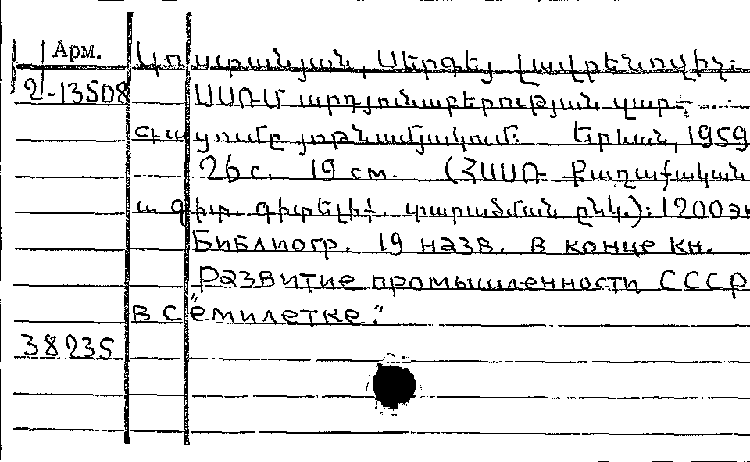 Арм.
Կոստանյան, Սերգեյ Լավրենտովիչ:
2-13508 ՍՍՌՄ արդյունաբերության զար-
գացումը յոթնամյակում: Երևան, 1959
26 с. 19 см. (ՀՍՍՌ Քաղաքական
և գիտ. գիտելիք. տարածման ընկ.): 1200 эк
Библиогр. 19 назв. в конце кн.
Развитие промышленности СССР
в семилетке."
38235